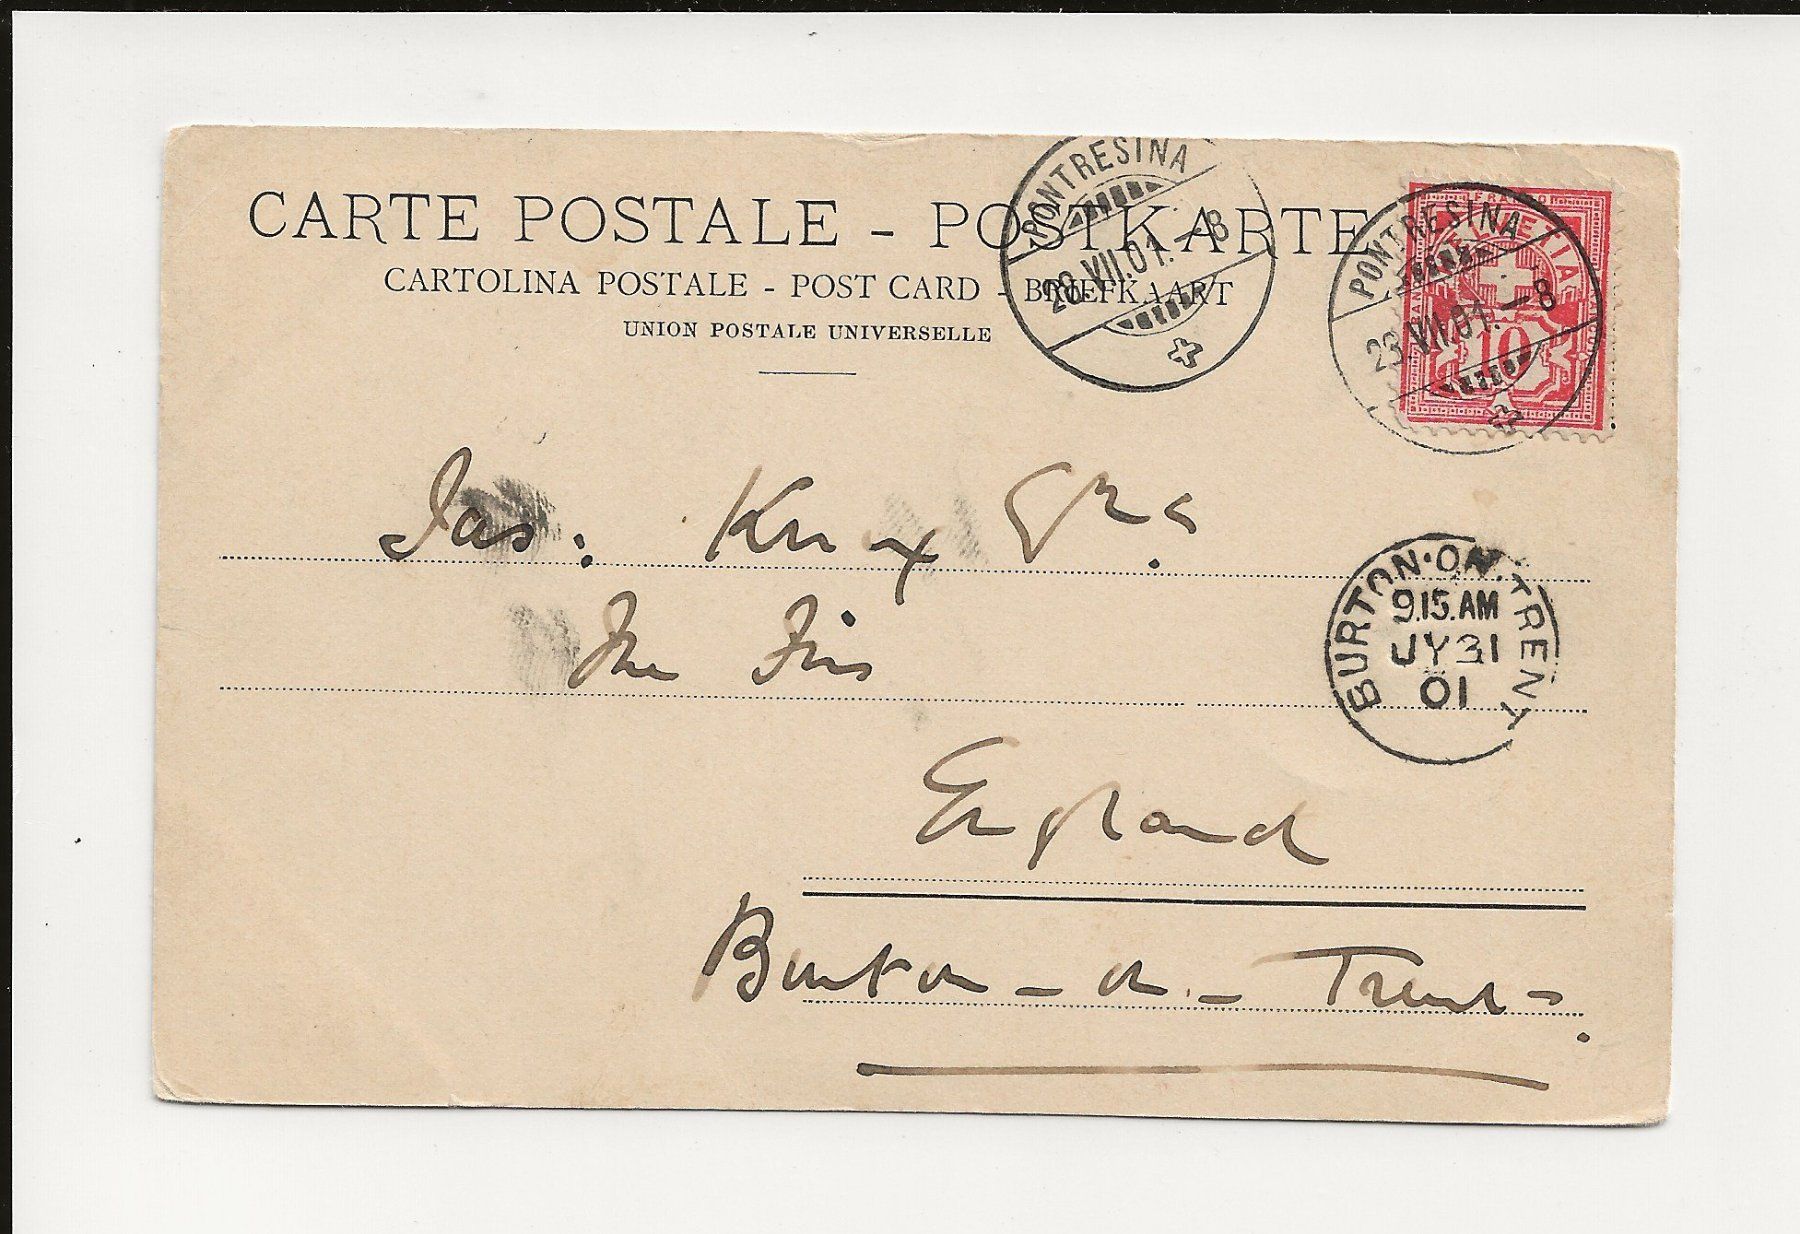 CARTE POSTALE - POSTKARTE
CARTOLINA POSTALE - POST CARD - BRIEFKAART
UNION POSTALE UNIVERSELLE
PONTRESINA
28.VII.01.–8
PONTRESINA
28.VII.01.–8
FRANCO
HELVETIA
10
Jas: Knox Esq.
The Firs
BURTON·ON·TRENT
9.15.AM
JY 31
01
England
Burton-on-Trent.